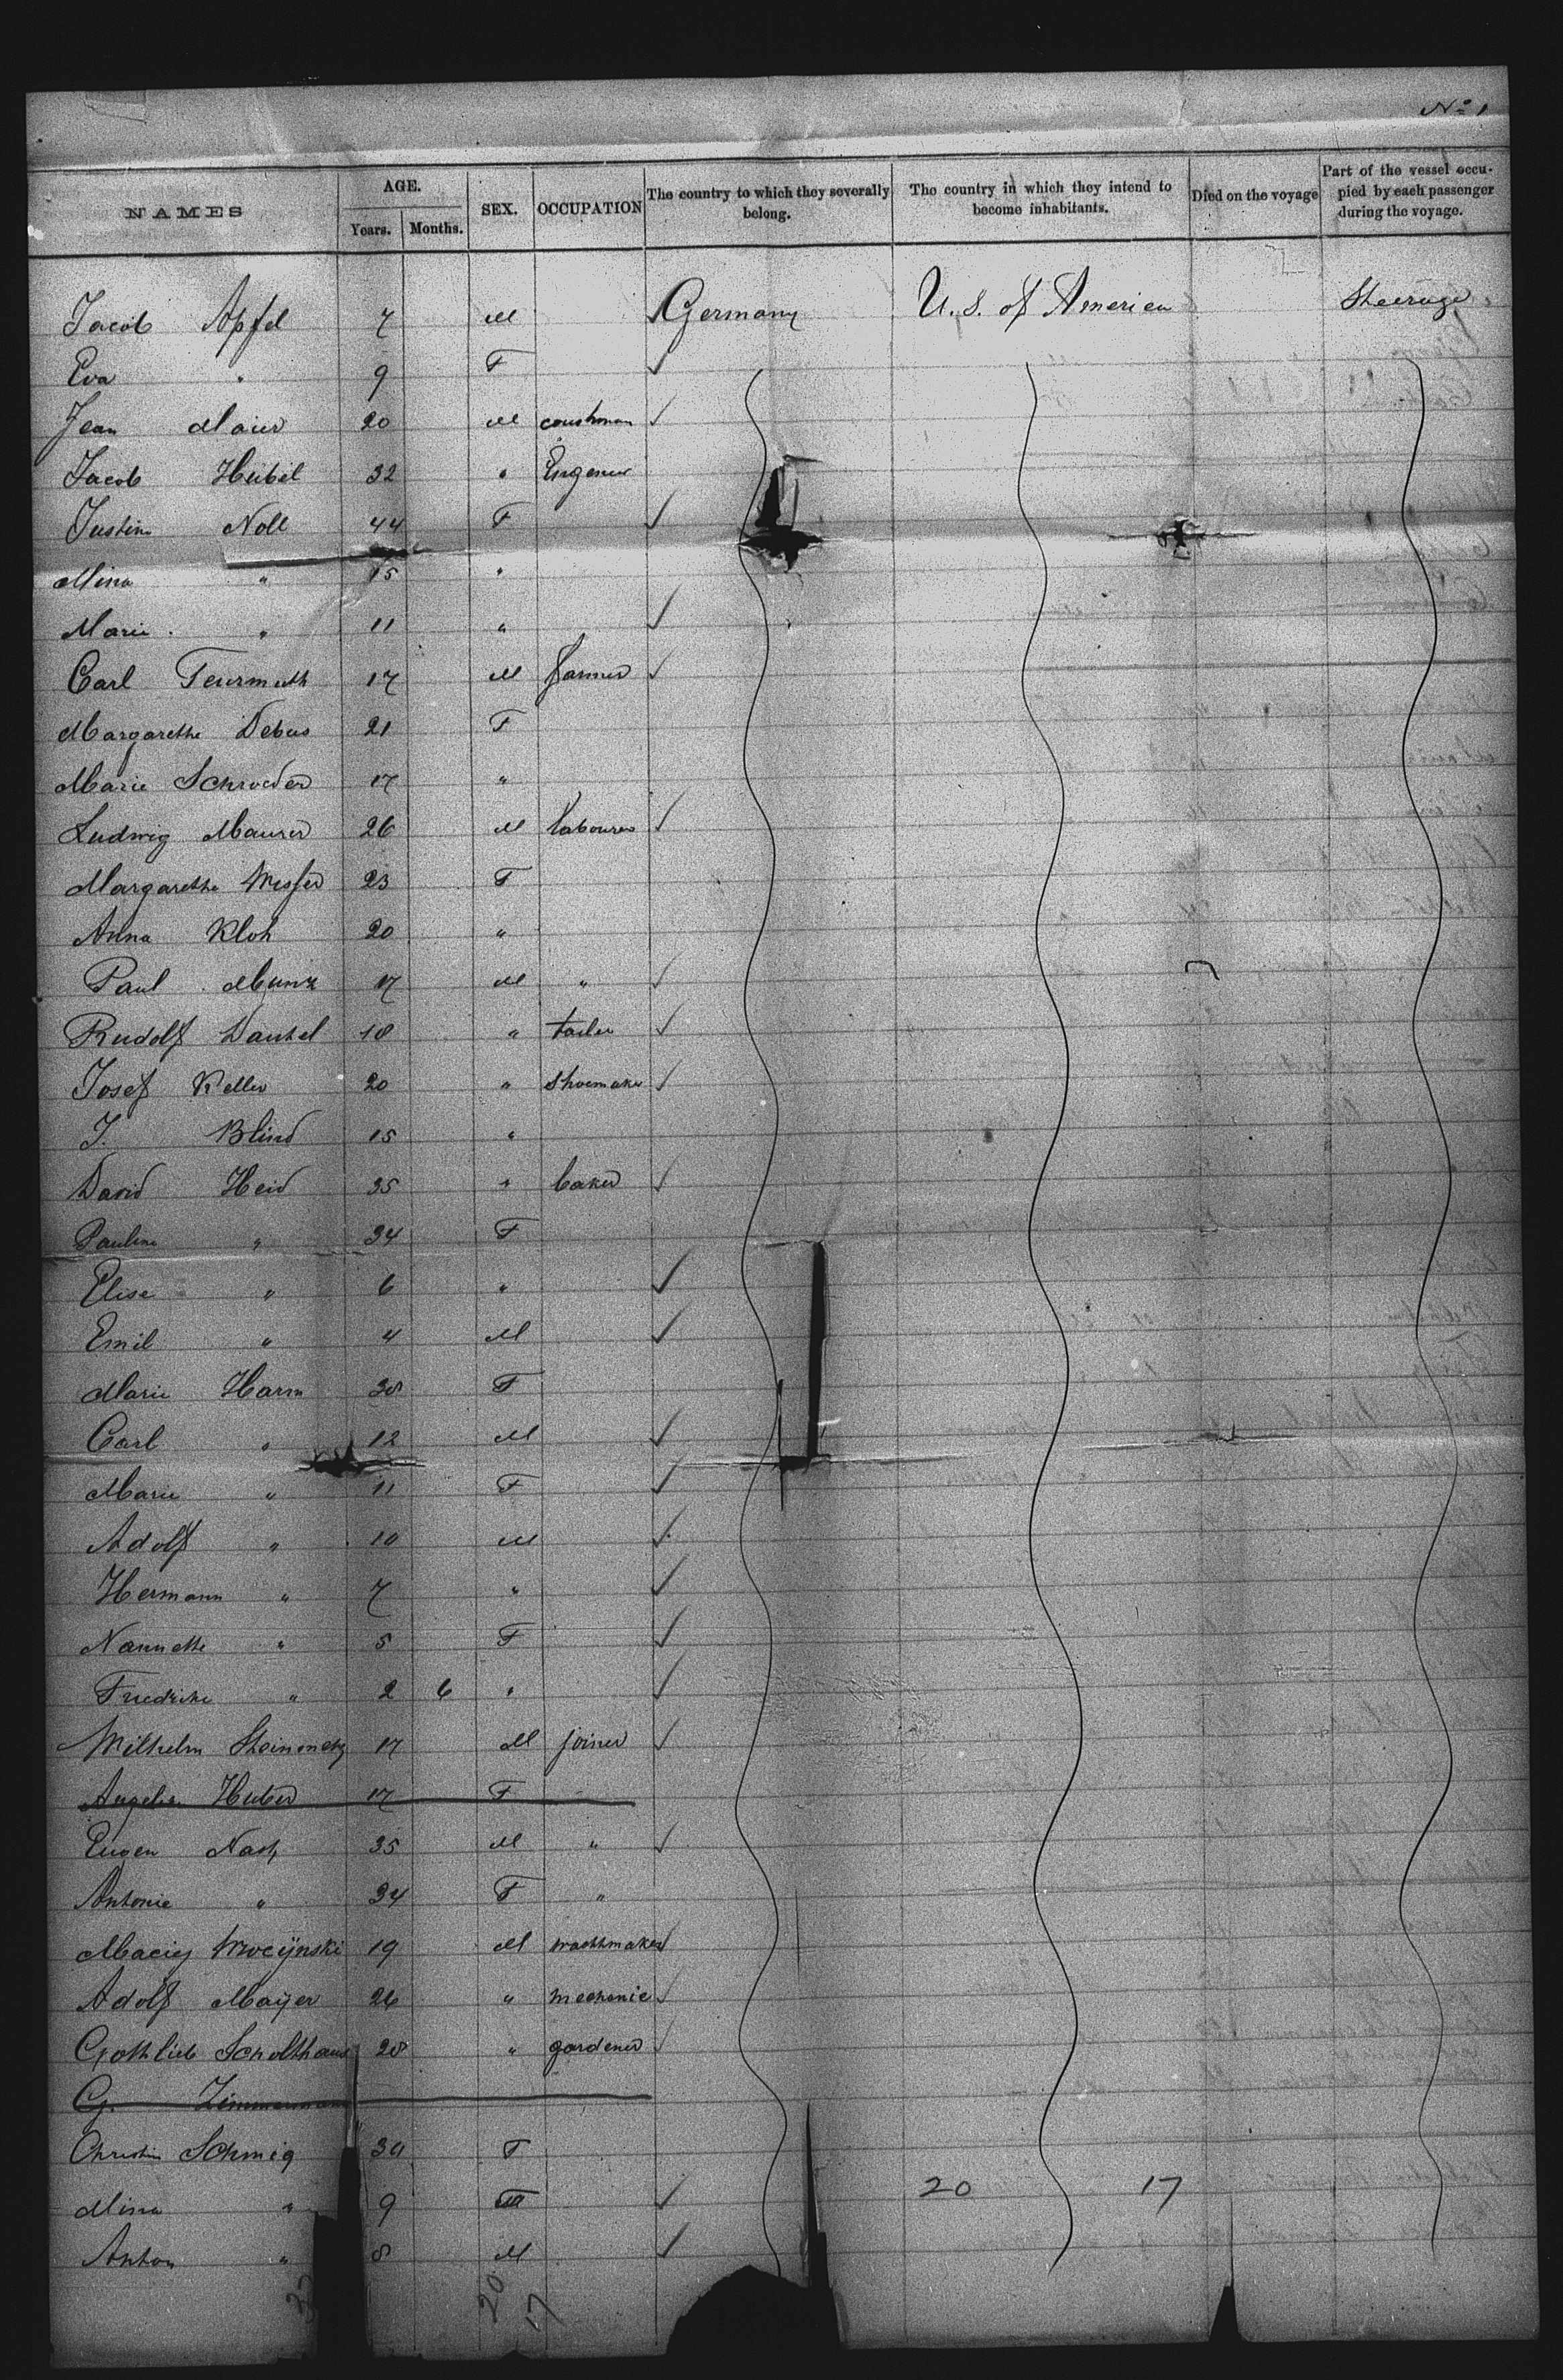 No 1
NAMES AGE. Years. Months. SEX. OCCUPATION The country to which they severally belong. The country in which they intend to become inhabitants. Died on the voyage Part of the vessel occupied by each passenger during the voyage.
Jacob Apfel 7 M Germany U.S. of America Steerage
Eva " 9 F
Jean Maier 20 M coushman
Jacob Heibel 32 "
Justine Noll 44 F
Mina " 15 "
Marie " 11 "
Carl Feurmuth 17 M farmer
Margarethe Debus 21 F
Marie Schroeder 17 "
Ludwig Maurer 26 M labourer
Margarethe Messer 23 F
Anna Kloh 20 "
Paul Munz 17 M "
Rudolf Dautel 18 " tailer
Josef Keller 20 " shoemaker
J. Blind 15 "
David Heid 35 " baker
Pauline " 34 F
Elise " 6 "
Emil " 4 M
Marie Harm 38 F
Carl " 12 M
Marie " 11 F
Adolf " 10 M
Hermann " 7 "
Nannette " 5 F
Friedrike " 2 6 "
Wilhelm Steinmetz 17 M joiner
Angelie Huber 17 F
Eugen Nast 35 M "
Antonie " 34 F "
Maciej 19 M wachtmaker
Adolf Mayer 26 " mechanic
Gottlieb Scholthaus 28 " gardener
G. Zimmermann
Christin Schmig 34 F
Mina " 9 F 20 17
Anton " 8 M
20
17